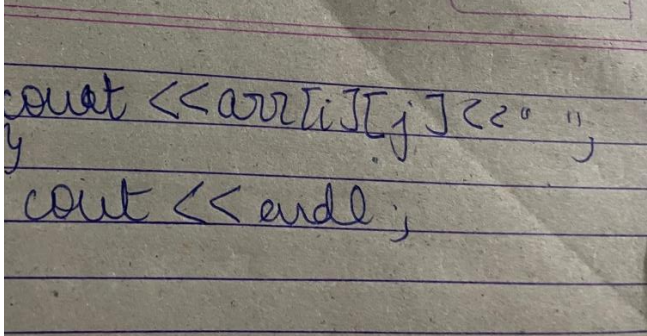 cout <<arr[i][j]<<" ";
}
cout << endl;